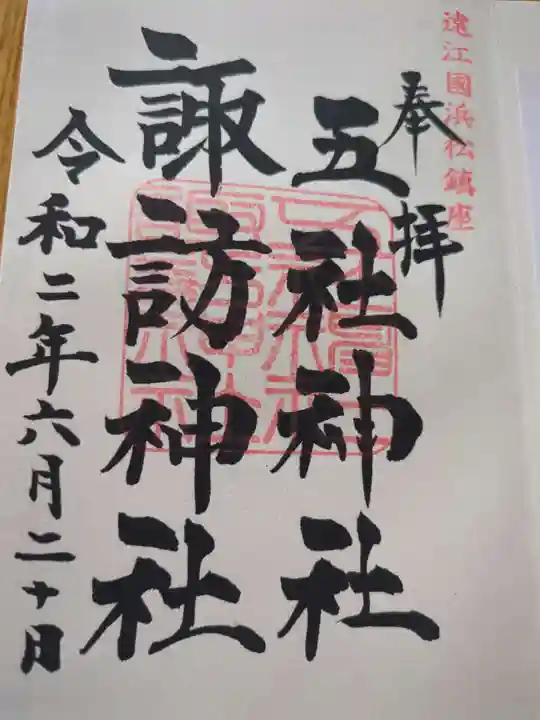 遠江國浜松鎮座
奉拝
五社神社
諏訪神社
令和二年六月二十日